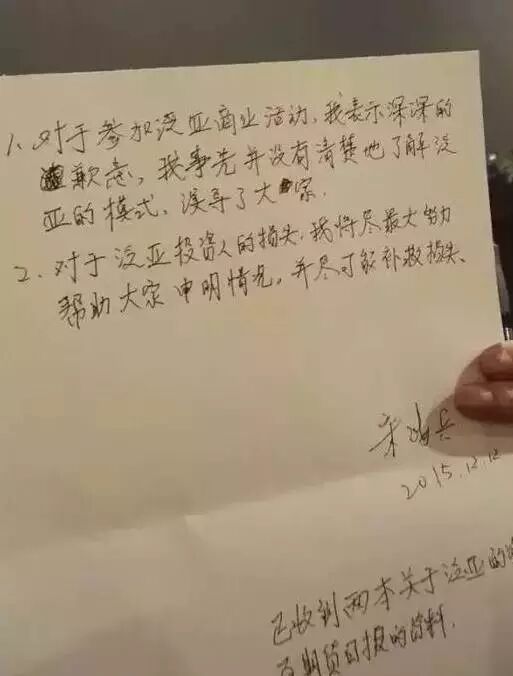 1、对于参加泛亚商业活动,我表示深深的
歉意,我事先并没有清楚地了解泛
亚的模式、误导了大家.
2、对于泛亚投资人的损失,我将尽最大努力
帮助大家申明情况,并尽可能补救损失、
宋鸿兵
2015.12.12
已收到两本关于泛亚的
期货日报的资料.